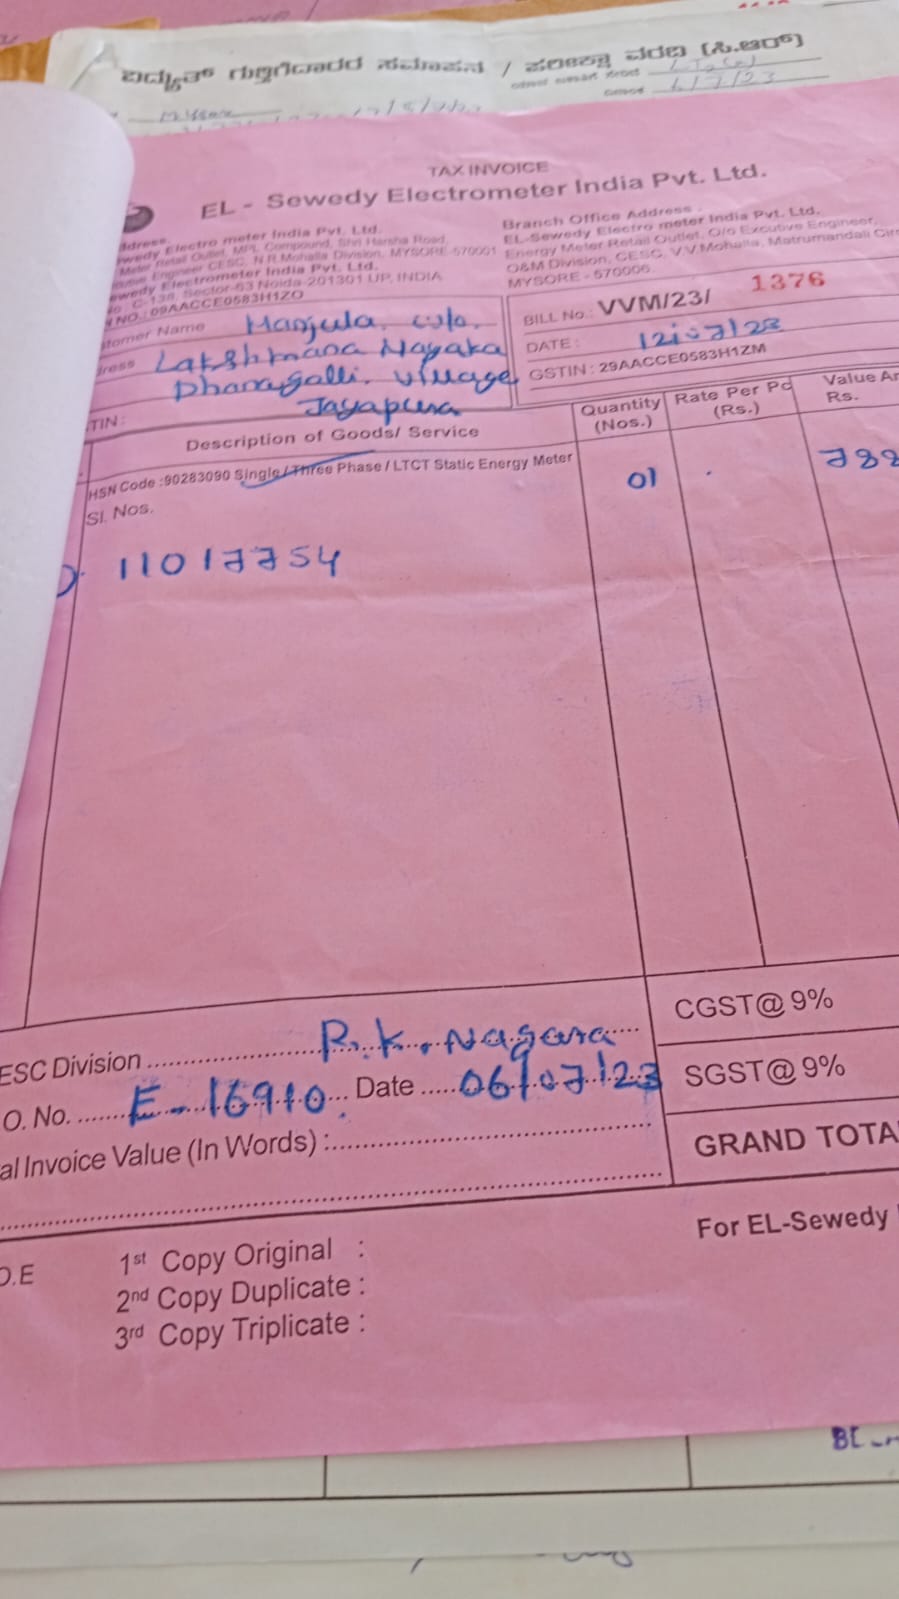 ವಿದ್ಯುತ್ ಗುತ್ತಿಗೆದಾರರ ಸಮಾಪನ / ಪರೀಕ್ಷಾ ವರದಿ (ಸಿ.ಆರ್)
6/7/23
TAX INVOICE
EL - Sewedy Electrometer India Pvt. Ltd.
ddress
wedy Electro meter India Pvt. Ltd.
Meter Retail Outlet, MPL Compound, Shri Harsha Road,
Engineer CESC, N.R.Mohalla Division, MYSORE-570001
ewedy Electrometer India Pvt. Ltd.
C-138, Sector-63 Noida-201301 UP, INDIA
NO.: 09AACCE0583H1ZO
Branch Office Address
EL-Sewedy Electro meter India Pvt. Ltd,
Energy Meter Retail Outlet, O/o Excutive Engineer,
O&M Division, CESC, V.V.Mohalla, Matrumandali Cir
MYSORE - 570006.
tomer Name Manjula. w/o.
ress Lakshmana Nayaka
Dhanagalli. village
Jayapura
TIN :
BILL No.: VVM/23/ 1376
DATE : 12/07/23
GSTIN : 29AACCE0583H1ZM
Description of Goods/ Service
Quantity (Nos.)
Rate Per Pc (Rs.)
Value Am Rs.
HSN Code :90283090 Single / Three Phase / LTCT Static Energy Meter 01
Sl. Nos.
11017754
ESC Division R.K. Nagara
O. No. E-16910 Date 06/07/23
al Invoice Value (In Words) :
CGST@ 9%
SGST@ 9%
GRAND TOTA
For EL-Sewedy
O.E
1st Copy Original :
2nd Copy Duplicate :
3rd Copy Triplicate :